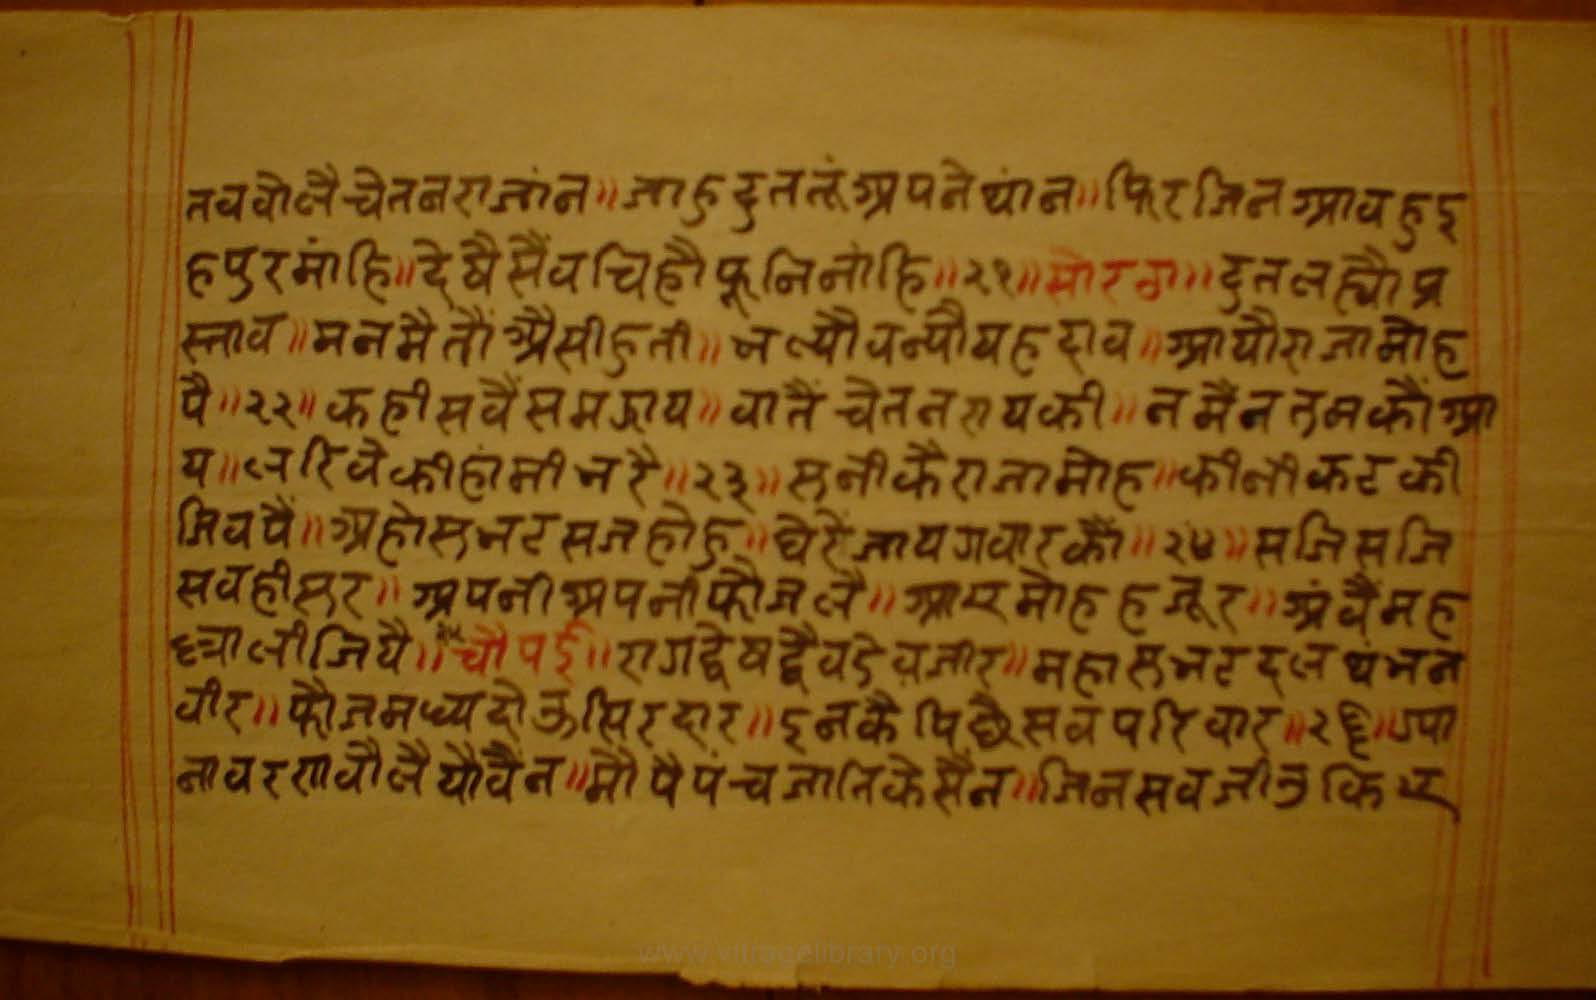 तववोलैचेतनराजांन॥जाहुदुततूंअपनेथांन॥फिरिजिनआवहुइ
हपुरमांहि॥देषैसैंवचिहौफूनिनांहि॥२१॥सोरठा॥दुतलह्यौप्र
स्ताव॥मनमैतौंअैसीहुती॥भल्यौवन्यौयहदाव॥आयौराजामोह
पै॥२२॥कहीसवैंसमझाय॥वातैंचेतनरायकी॥नमैंनतुमकौंआ
य॥लरिवेकीहांमीभरै॥२३॥सुनीकैराजामोह॥कीनीकटकी
जिवपैं॥अहोसुभटसजहोहु॥घेरैंजायगवारकौं॥२४॥सजिसजि
सवहीसुर॥अपनीअपनीफौजलै॥आएमोहहजूर॥अंवैंमह
लीजियै॥२५॥चौपई॥रागद्वेषद्वैवडेवजीर॥महासुभटदलथंभन
वीर॥फौजमध्यदोऊसिरदार॥इनकैपिछैसवपरिवार॥२६॥ग्या
नावरणवौलैयौवैंन॥मोपैपंचजातिकेसैंन॥जिनसवजीउकिए
www.vitragelibrary.org